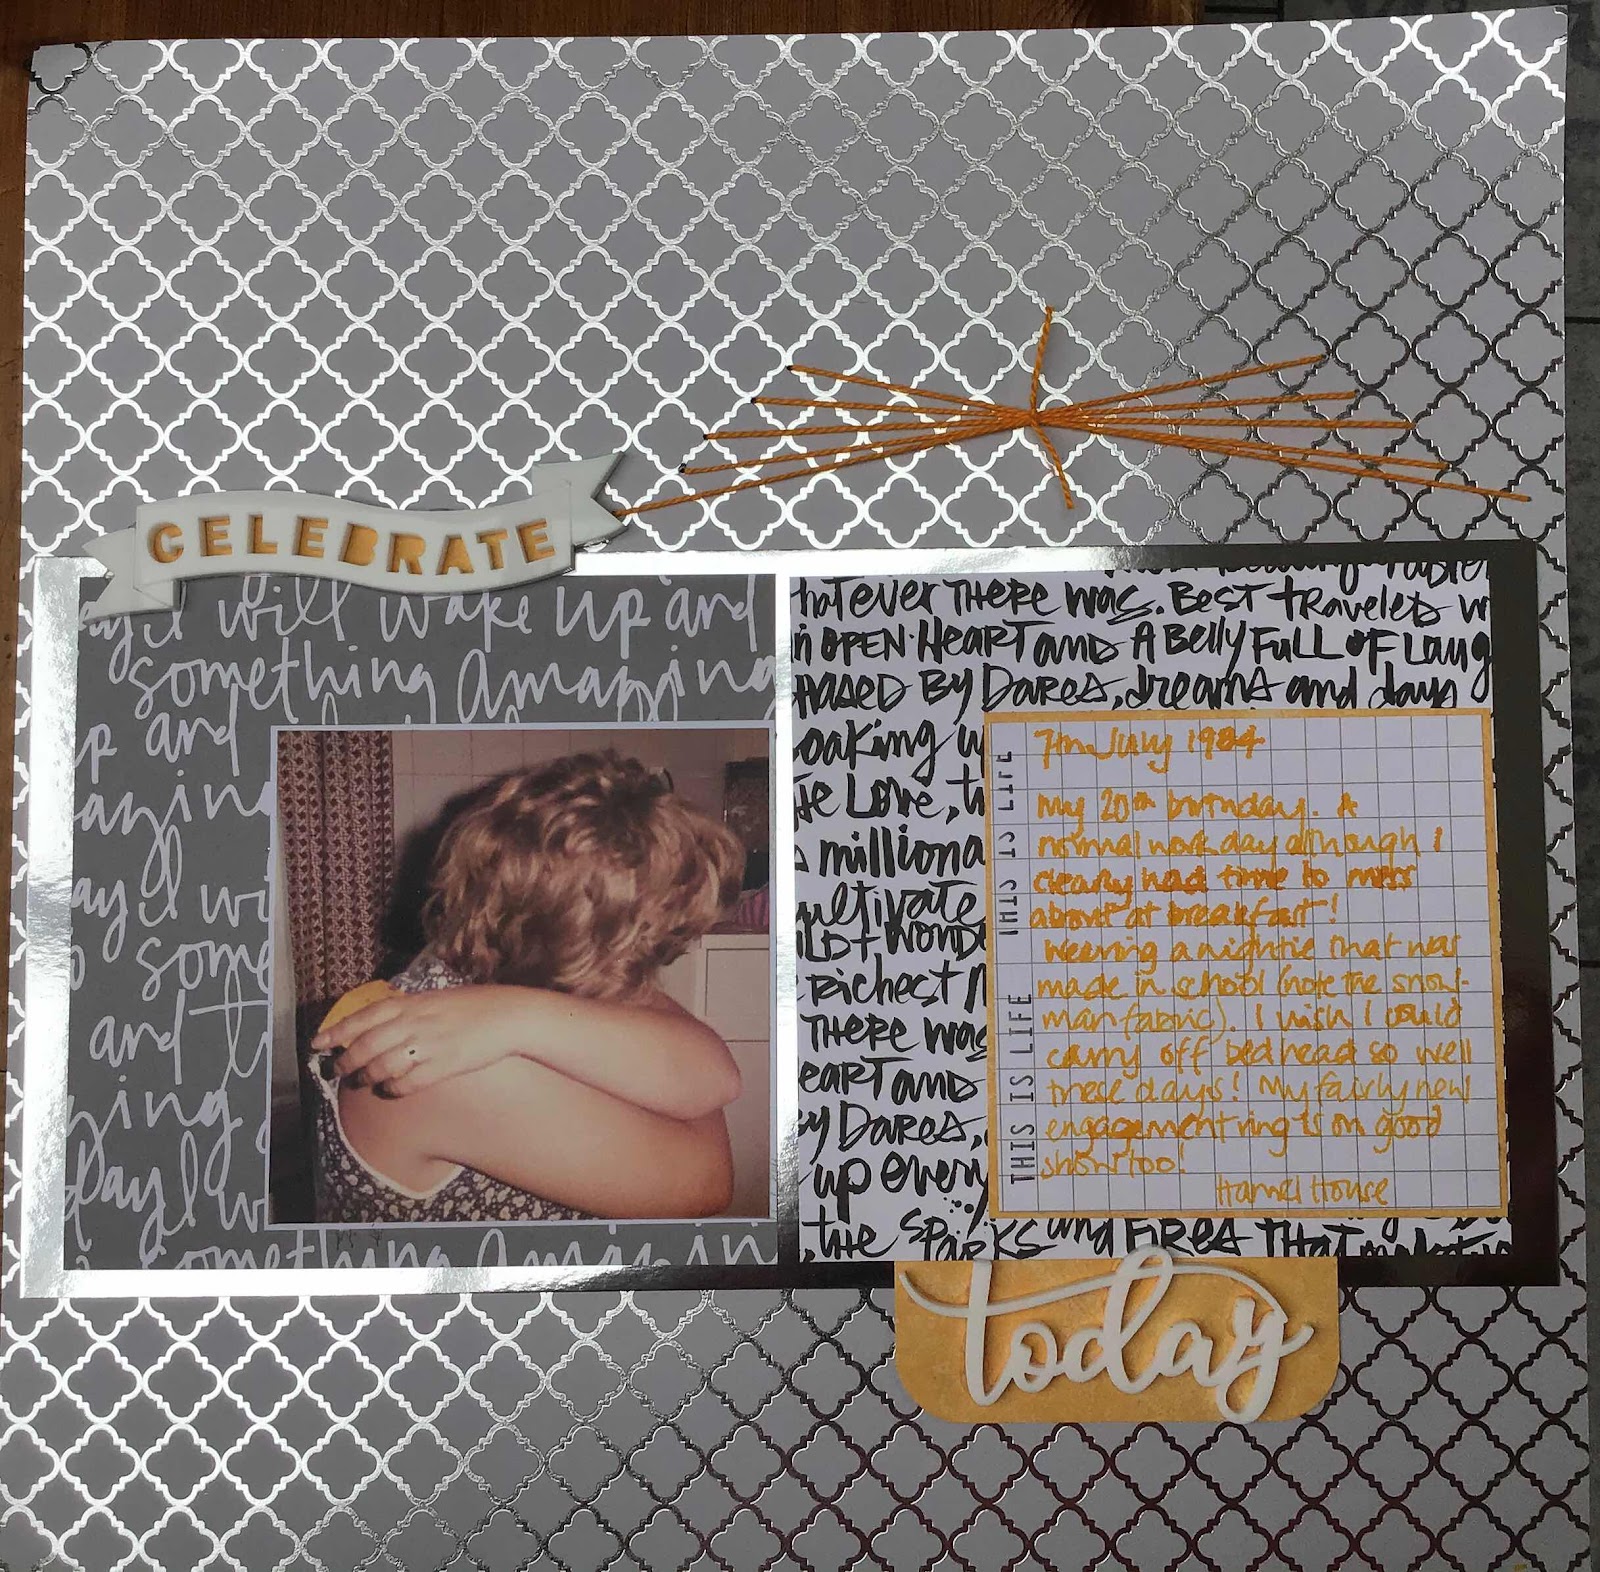 CELEBRATE
I will wake up and
something amazing
up and
Day I
some
and
Day I
something
hatever THERE was. Best traveled
OPEN HEART and A Belly FULL OF Laug
HASED BY DARES, dreams and days
oaking
Love,
milliona
ultivate
WOND
Richest
THERE was
eart and
By DARES,
up every
THE SPARKS and FIRES THAT
THIS IS LIFE
THIS IS LIFE
7th July 1984
My 20th birthday. A
normal work day although I
clearly had time to mess
about at breakfast!
Wearing a nightie that was
made in school (note the snow-
man fabric). I wish I could
carry off bed head so well
these days! My fairly new
engagement ring is on good
show too!
Hamel House
today